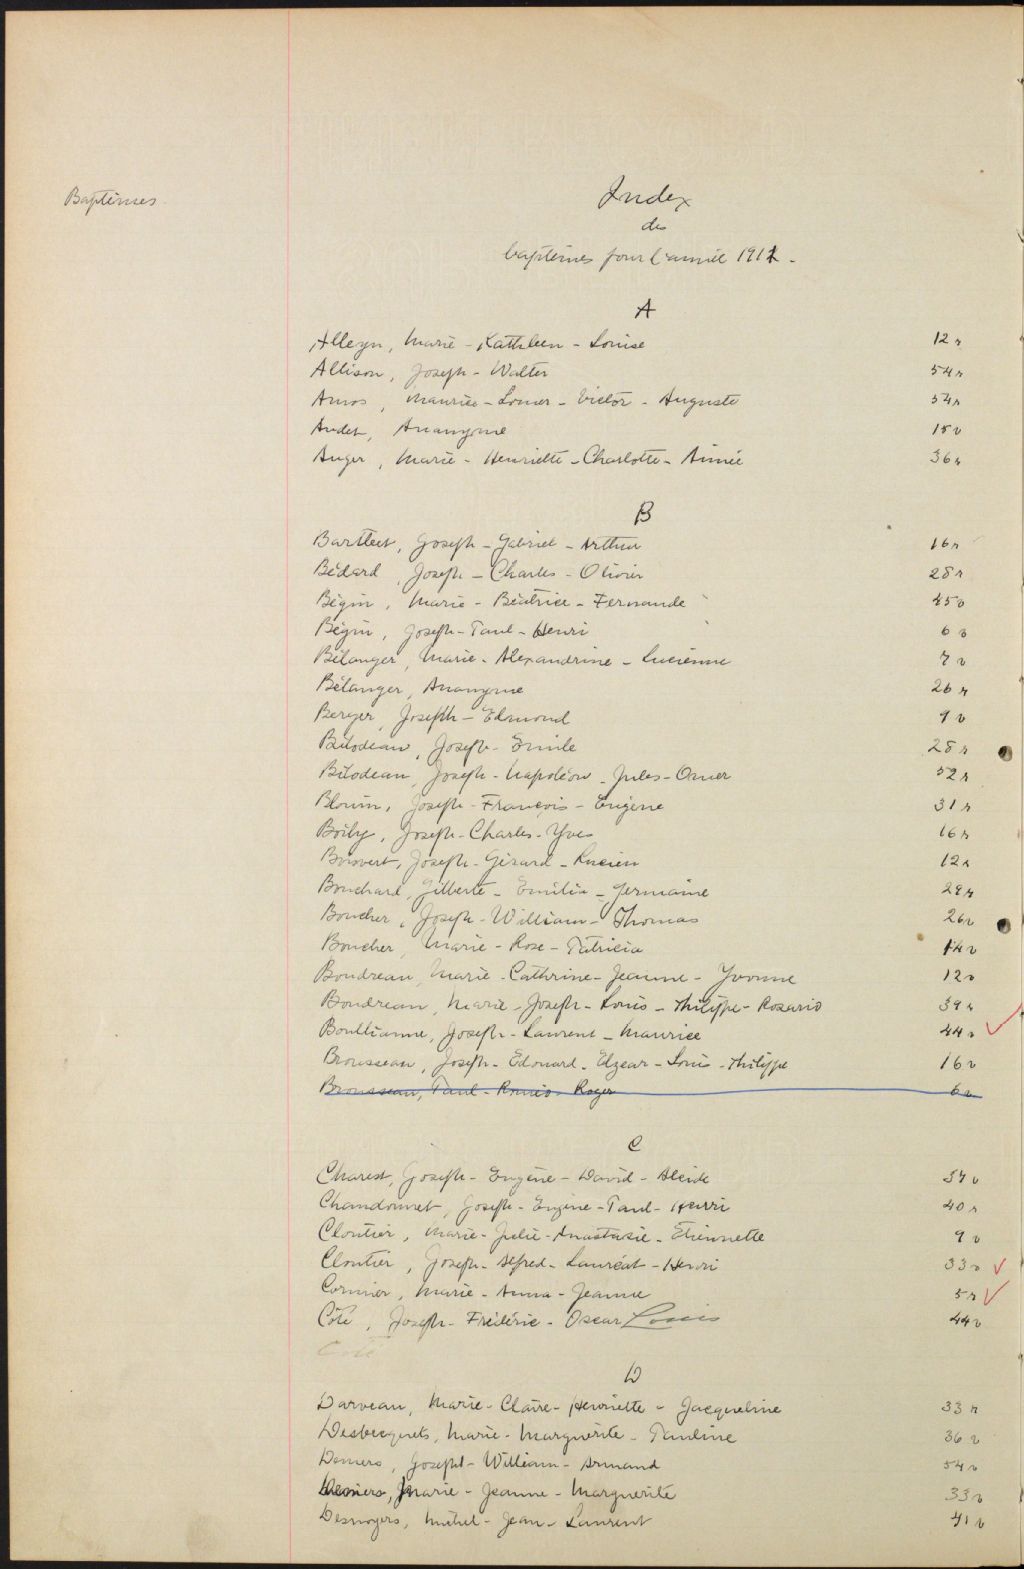 Baptêmes
Index
des
baptêmes pour l'année 1911.
A
Alleyn, Marie - Kathleen - Louise 12 r
Allison, Joseph - Walter 54 r
Amos, Maurice - Lomer - Victor - Auguste 54 r
Audet, Anonyme 15 v
Auger, Marie - Henriette - Charlotte - Aimée 36 r
B
Bartlett, Joseph - Gabriel - Arthur 16 r
Bédard, Joseph - Charles - Olivier 28 r
Bégin, Marie - Béatrice - Fernande 45 v
Bégin, Joseph - Paul - Henri 6 v
Bélanger, Marie - Alexandrine - Lucienne 7 v
Bélanger, Anonyme 26 r
Berger, Joseph - Edmond 9 v
Bilodeau, Joseph - Emile 28 r
Bilodeau, Joseph - Napoléon - Jules - Omer 52 r
Blouin, Joseph - François - Eugène 31 r
Boily, Joseph - Charles - Yves 16 r
Boisvert, Joseph - Gérard - Lucien 12 r
Bouchard, Gilberte - Emilia - Germaine 29 r
Boucher, Joseph - William - Thomas 26 v
Boucher, Marie - Rose - Patricia 14 v
Boudreau, Marie - Cathrine - Jeanne - Yvonne 12 v
Boudreau, Marie - Joseph - Louis - Philippe - Rosario 39 r
Boullianne, Joseph - Laurent - Maurice 44 r
Brousseau, Joseph - Edouard - Elzear - Louis - Philippe 16 v
Brousseau, Paul - Roméo - Roger 6 v
C
Charest, Joseph - Eugène - David - Alcide 37 v
Chandonnet, Joseph - Eugène - Paul - Henri 40 r
Cloutier, Marie - Julie - Anastasie - Etiennette 9 v
Cloutier, Joseph - Alfred - Lauréat - Henri 33 v
Cormier, Marie - Anna - Jeanne 5 r
Côté, Joseph - Frédéric - Oscar Louis 44 v
Coté
D
Darveau, Marie - Claire - Henriette - Jacqueline 33 r
Desbecquets, Marie - Marguerite - Pauline 36 v
Demers, Joseph - William - Armand 54 v
Demers, Marie - Jeanne - Marguerite 33 v
Desnoyers, Michel - Jean - Laurent 41 v